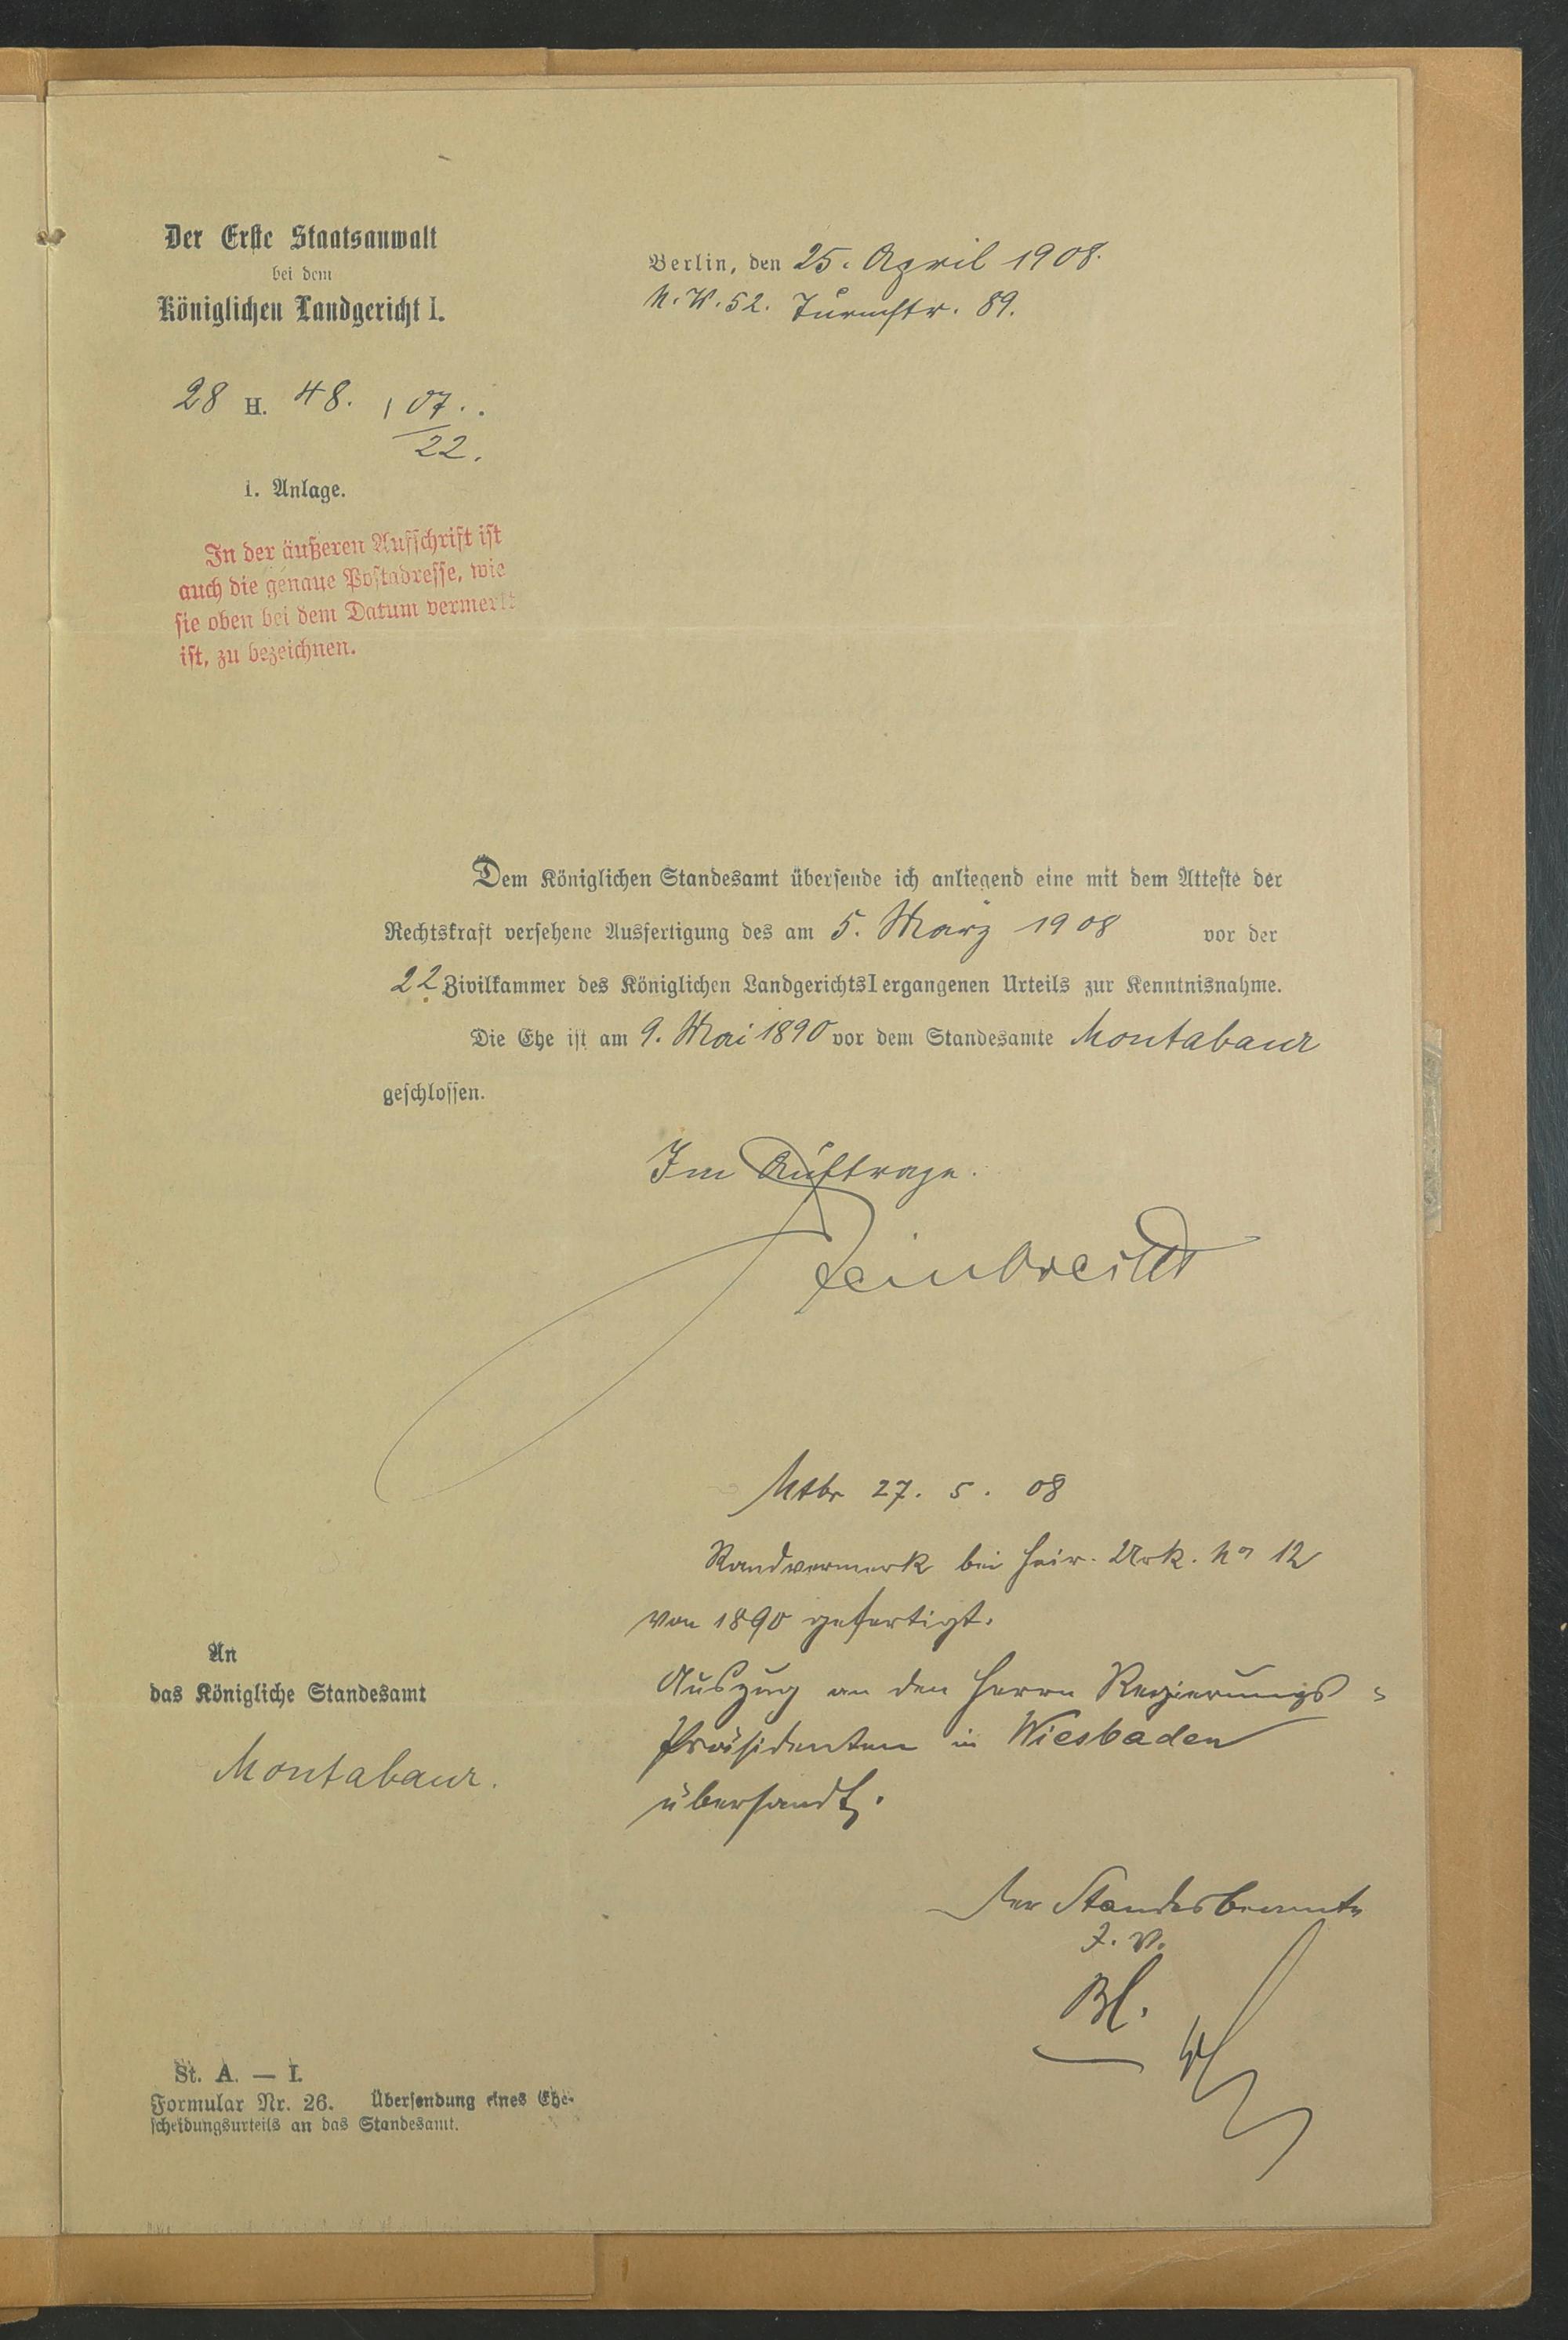 Der Erste Staatsanwalt
bei dem
Königlichen Landgericht I.
Berlin, den 25. April 1908.
N. W. 52. Turmstr. 89.
28 H. 48. / 07..
22.
1. Anlage.
In der äußeren Aufschrift ist
auch die genaue Postadresse, wie
sie oben bei dem Datum vermerkt
ist, zu bezeichnen.
Dem Königlichen Standesamt übersende ich anliegend eine mit dem Atteste der
Rechtskraft versehene Ausfertigung des am 5. März 1908 vor der
22. Zivilkammer des Königlichen Landgerichts I ergangenen Urteils zur Kenntnisnahme.
Die Ehe ist am 9. Mai 1890 vor dem Standesamte Montabaur
geschlossen.
Im Auftrage.
Mtbr 27. 5. 08
Randvermerk bei Heir. Urk. No 12
von 1890 gefertigt.
Auszug an den Herrn Regierungs-
Präsidenten in Wiesbaden
übersandt.
Der Standesbeamte
J. V.
Bl.
An
das Königliche Standesamt
Montabaur.
St. A. — I.
Formular Nr. 26. Übersendung eines Ehe-
scheidungsurteils an das Standesamt.